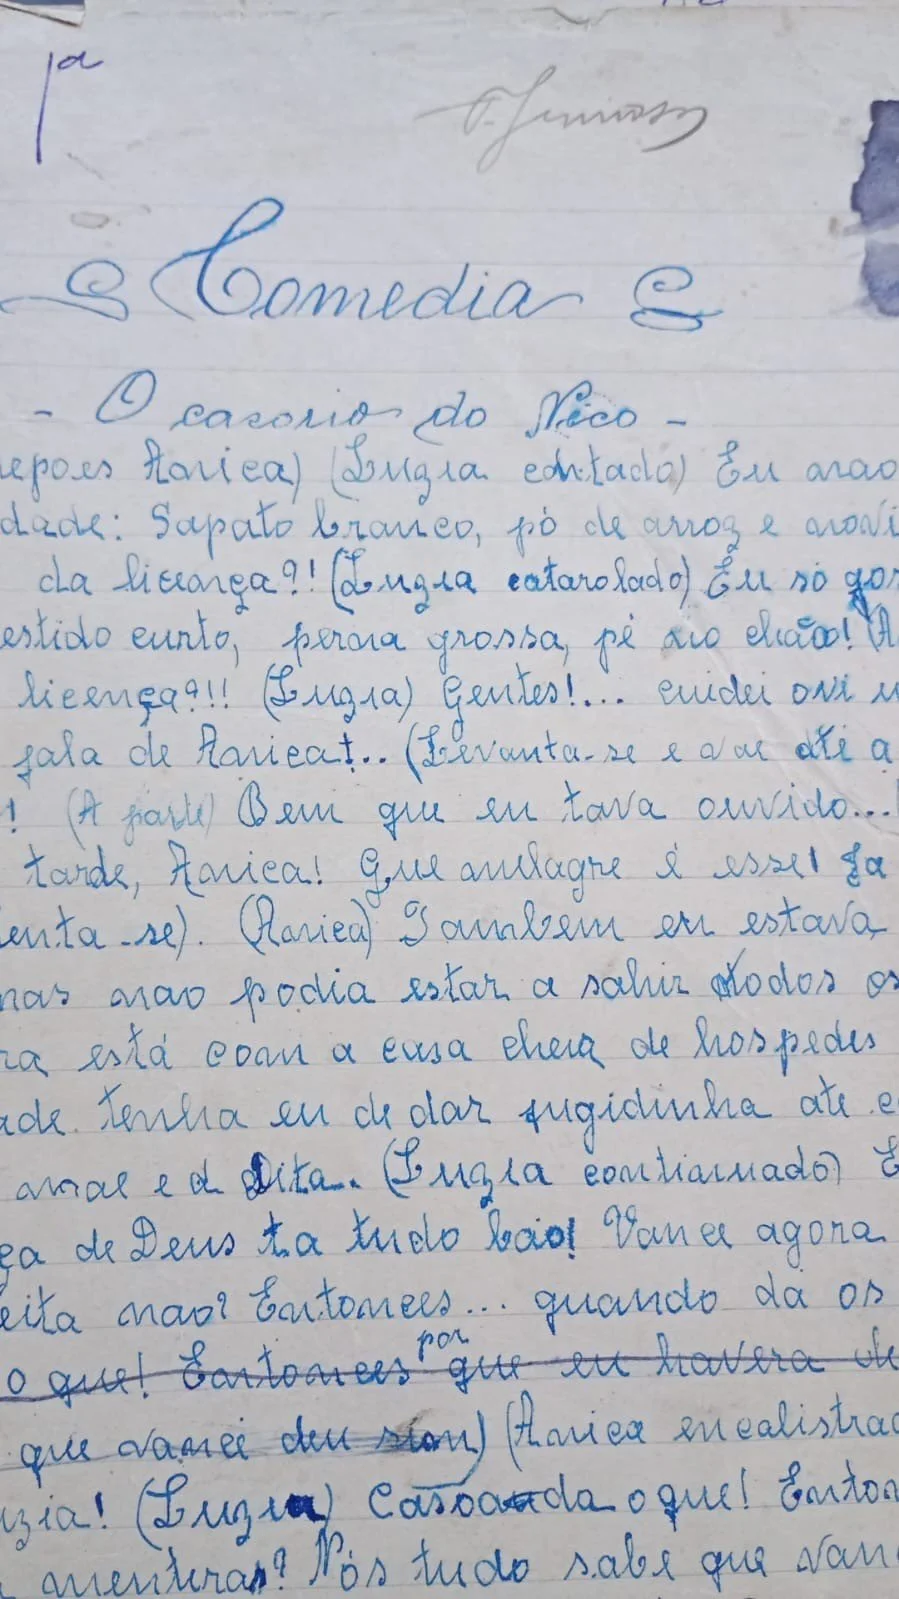 1ª
Comedia
- O casorio do Nico -
depoes Anica) (Luzia contado) Eu nao
dade: Sapato branco, pó de arroz e novi
da licença?! (Luzia catarolado) Eu só gos
estido curto, perna grossa, pé no chão! (A
licença?!! (Luzia) Gentes!... cuidei ovi u
fala de Anica!.. (Levanta-se e vae até a
! (A parte) Bem que eu tava ouvido...
tarde, Anica! Que milagre é esse! Ja
enta-se). (Anica) Tambem eu estava
mas nao podia estar a sahir todos os
ra está com a casa cheia de hospedes
ade. tenha eu de dar fugidinha ate
mae e a Dita... (Luzia continuado) E
ça de Deus ta tudo bão! Vance agora
eita nao? Entonces... quando da os
o que! Entonces por que eu havera de
que vancê deu sion) (Anica encalistrad
uzia! (Luzia) Casoada o que! Enton
mentiras? Nós tudo sabe que van